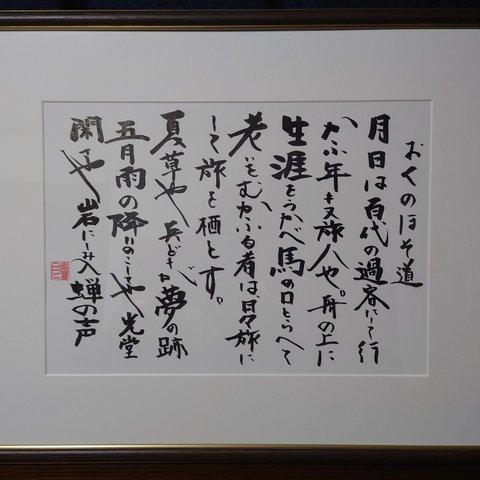 おくのほそ道
月日は百代の過客にして行
かふ年も又旅人や。舟の上に
生涯をうかべ馬の口とらへて
老いをむかふる者は、日々旅に
して旅を栖とす。
夏草や 兵どもが夢の跡
五月雨の降りのこしてや光堂
閑さや 岩にしみ入 蝉の声